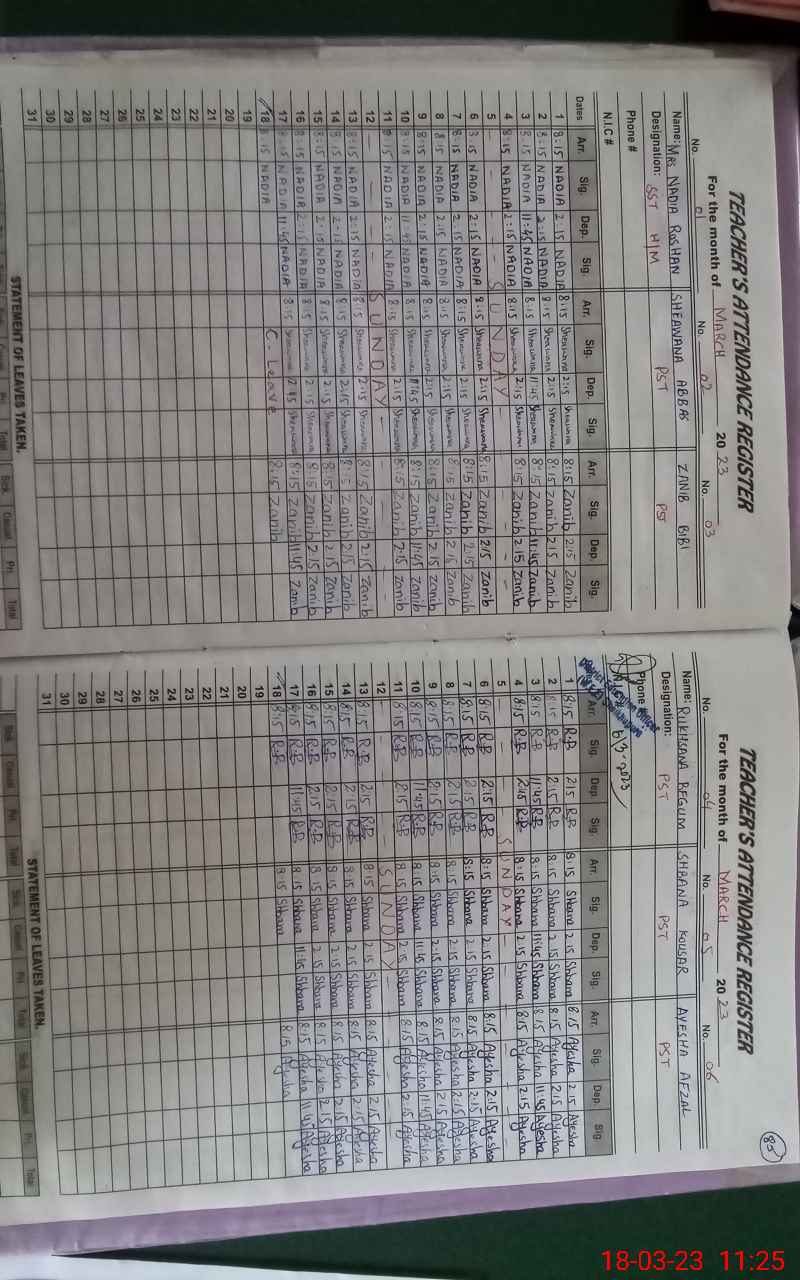 TEACHER'S ATTENDANCE REGISTER
For the month of MARCH 2023
No. 01 No. 02 No. 03
Name: MRS NADIA ROSHAN SHEAWANA ABBAS ZANIB BIBI
Designation: SST H/M PST PST
Phone #
N.I.C #
Dates Arr. Sig. Dep. Sig. Arr. Sig. Dep. Sig. Arr. Sig. Dep. Sig.
1 8:15 NADIA 2:15 NADIA 8:15 Sheawana 2:15 Sheawana 8:15 Zanib 2:15 Zanib
2 8:15 NADIA 2:15 NADIA 8:15 Sheawana 2:15 Sheawana 8:15 Zanib 2:15 Zanib
3 8:15 NADIA 11:45 NADIA 8:15 Sheawana 11:45 Sheawana 8:15 Zanib 11:45 Zanib
4 8:15 NADIA 2:15 NADIA 8:15 Sheawana 2:15 Sheawana 8:15 Zanib 2:15 Zanib
5 - - - - SUNDAY - - - -
6 8:15 NADIA 2:15 NADIA 8:15 Sheawana 2:15 Sheawana 8:15 Zanib 2:15 Zanib
7 8:15 NADIA 2:15 NADIA 8:15 Sheawana 2:15 Sheawana 8:15 Zanib 2:15 Zanib
8 8:15 NADIA 2:15 NADIA 8:15 Sheawana 2:15 Sheawana 8:15 Zanib 2:15 Zanib
9 8:15 NADIA 2:15 NADIA 8:15 Sheawana 2:15 Sheawana 8:15 Zanib 2:15 Zanib
10 8:15 NADIA 11:45 NADIA 8:15 Sheawana 11:45 Sheawana 8:15 Zanib 11:45 Zanib
11 8:15 NADIA 2:15 NADIA 8:15 Sheawana 2:15 Sheawana 8:15 Zanib 2:15 Zanib
12 - - - - SUNDAY - - - -
13 8:15 NADIA 2:15 NADIA 8:15 Sheawana 2:15 Sheawana 8:15 Zanib 2:15 Zanib
14 8:15 NADIA 2:15 NADIA 8:15 Sheawana 2:15 Sheawana 8:15 Zanib 2:15 Zanib
15 8:15 NADIA 2:15 NADIA 8:15 Sheawana 2:15 Sheawana 8:15 Zanib 2:15 Zanib
16 8:15 NADIA 2:15 NADIA 8:15 Sheawana 2:15 Sheawana 8:15 Zanib 2:15 Zanib
17 8:15 NADIA 11:45 NADIA 8:15 Sheawana Sheawana 8:15 Zanib 11:45 Zanib
18 8:15 NADIA C-Leave 8:15 Zanib
19
20
21
22
23
24
25
26
27
28
29
30
31
STATEMENT OF LEAVES TAKEN.
Sick Casual Pri. Total
85
TEACHER'S ATTENDANCE REGISTER
For the month of MARCH 2023
No. 04 No. 05 No. 06
Name: RUKHSANA BEGUM SHBANA KOUSAR AYESHA AFZAL
Designation: PST PST PST
Phone #
6/3-2023
Arr. Sig. Dep. Sig. Arr. Sig. Dep. Sig. Arr. Sig. Dep. Sig.
1 8:15 R.B 2:15 R.B 8:15 Shbana 2:15 Shbana 8:15 Ayesha 2:15 Ayesha
2 8:15 R.B 2:15 R.B 8:15 Shbana 2:15 Shbana 8:15 Ayesha 2:15 Ayesha
3 8:15 R.B 11:45 R.B 8:15 Shbana 11:45 Shbana 8:15 Ayesha 11:45 Ayesha
4 8:15 R.B 2:15 R.B 8:15 Shbana 2:15 Shbana 8:15 Ayesha 2:15 Ayesha
5 - - - SUNDAY - - - -
6 8:15 R.B 2:15 R.B 8:15 Shbana 2:15 Shbana 8:15 Ayesha 2:15 Ayesha
7 8:15 R.B 2:15 R.B 8:15 Shbana 2:15 Shbana 8:15 Ayesha 2:15 Ayesha
8 8:15 R.B 2:15 R.B 8:15 Shbana 2:15 Shbana 8:15 Ayesha 2:15 Ayesha
9 8:15 R.B 2:15 R.B 8:15 Shbana 2:15 Shbana 8:15 Ayesha 2:15 Ayesha
10 8:15 R.B 11:45 R.B 8:15 Shbana 11:45 Shbana 8:15 Ayesha 11:45 Ayesha
11 8:15 R.B 2:15 R.B 8:15 Shbana 2:15 Shbana 8:15 Ayesha 2:15 Ayesha
12 - - - SUNDAY - - - -
13 8:15 R.B 2:15 R.B 8:15 Shbana 2:15 Shbana 8:15 Ayesha 2:15 Ayesha
14 8:15 R.B 2:15 R.B 8:15 Shbana 2:15 Shbana 8:15 Ayesha 2:15 Ayesha
15 8:15 R.B 2:15 R.B 8:15 Shbana 2:15 Shbana 8:15 Ayesha 2:15 Ayesha
16 8:15 R.B 2:15 R.B 8:15 Shbana 2:15 Shbana 8:15 Ayesha 2:15 Ayesha
17 8:15 R.B 11:45 R.B 8:15 Shbana 11:45 Shbana 8:15 Ayesha 11:45 Ayesha
18 8:15 R.B 8:15 Shbana 8:15 Ayesha
19
20
21
22
23
24
25
26
27
28
29
30
31
STATEMENT OF LEAVES TAKEN.
Sick Casual Pri. Total
18-03-23 11:25